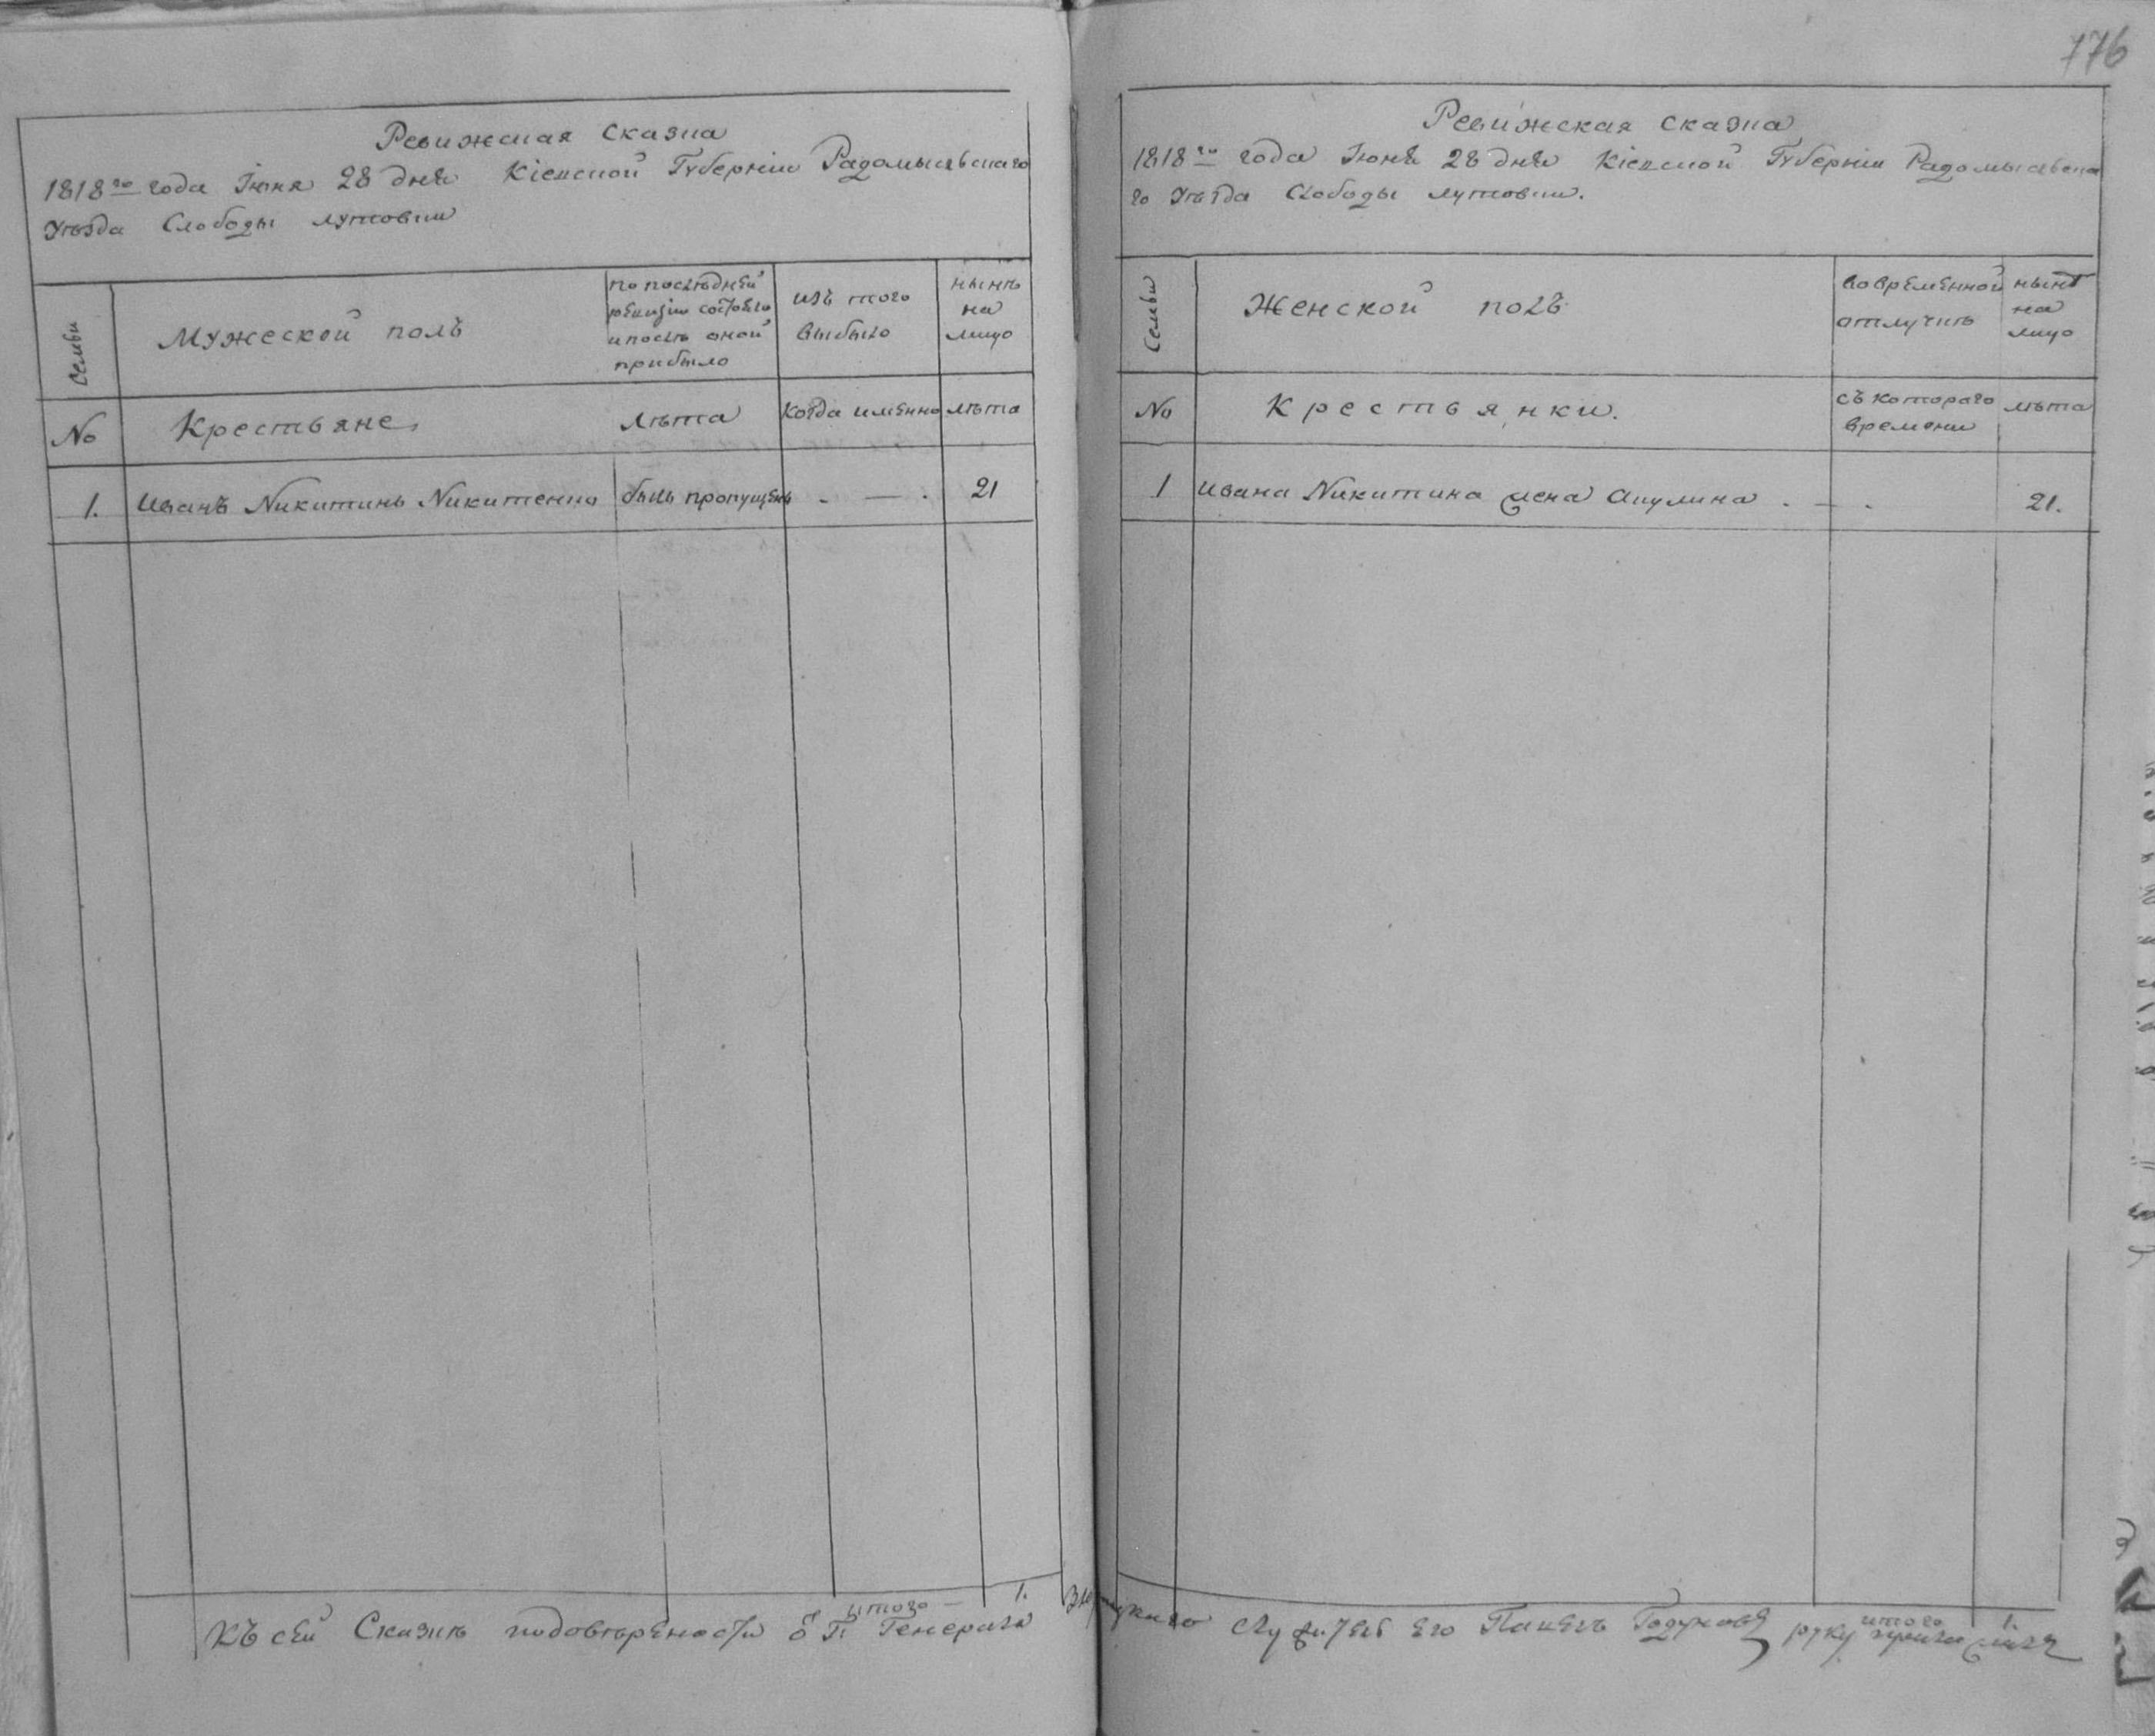 776
Ревижская Сказка
1818го года Іюня 28 дня Кіевской Губерніи Радомысльскаго
Уѣзда Слободы лутовки
Семьи
Мужеской полъ
по послѣдней
ревизіи состояло
и послѣ оной
прибыло
изъ того
выбыло
нынѣ
на
лицо
№
Крестьяне
лѣта
Когда именно
лѣта
1.
Иванъ Никитинъ Никитенко
былъ пропущенъ
- — -
21
итого — 1.
Къ сей Сказкѣ по довѣренности
Генерала
Ревижская сказка
1818го года Іюня 28 дня Кіевской Губерніи Радомысльска
го Уѣзда Слободы лутовки.
Семьи
Женской полъ
во временной
отлучкѣ
нынѣ
на
лицо
№
Крестьянки.
съ котораго
времени
лѣта
1
Ивана Никитина жена Акулина . — .
21.
итого 1.
служитель его Павелъ руку приложилъ